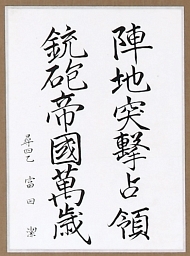 陣地突撃占領
銃砲帝國萬歳
尋四乙 富田 潔